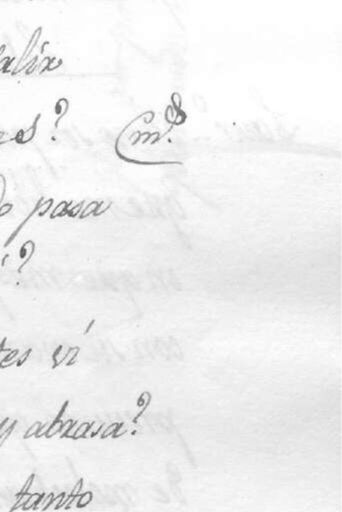 alir
es? m.s
o pasa
i?
tes vi
y abrasa?
tanto